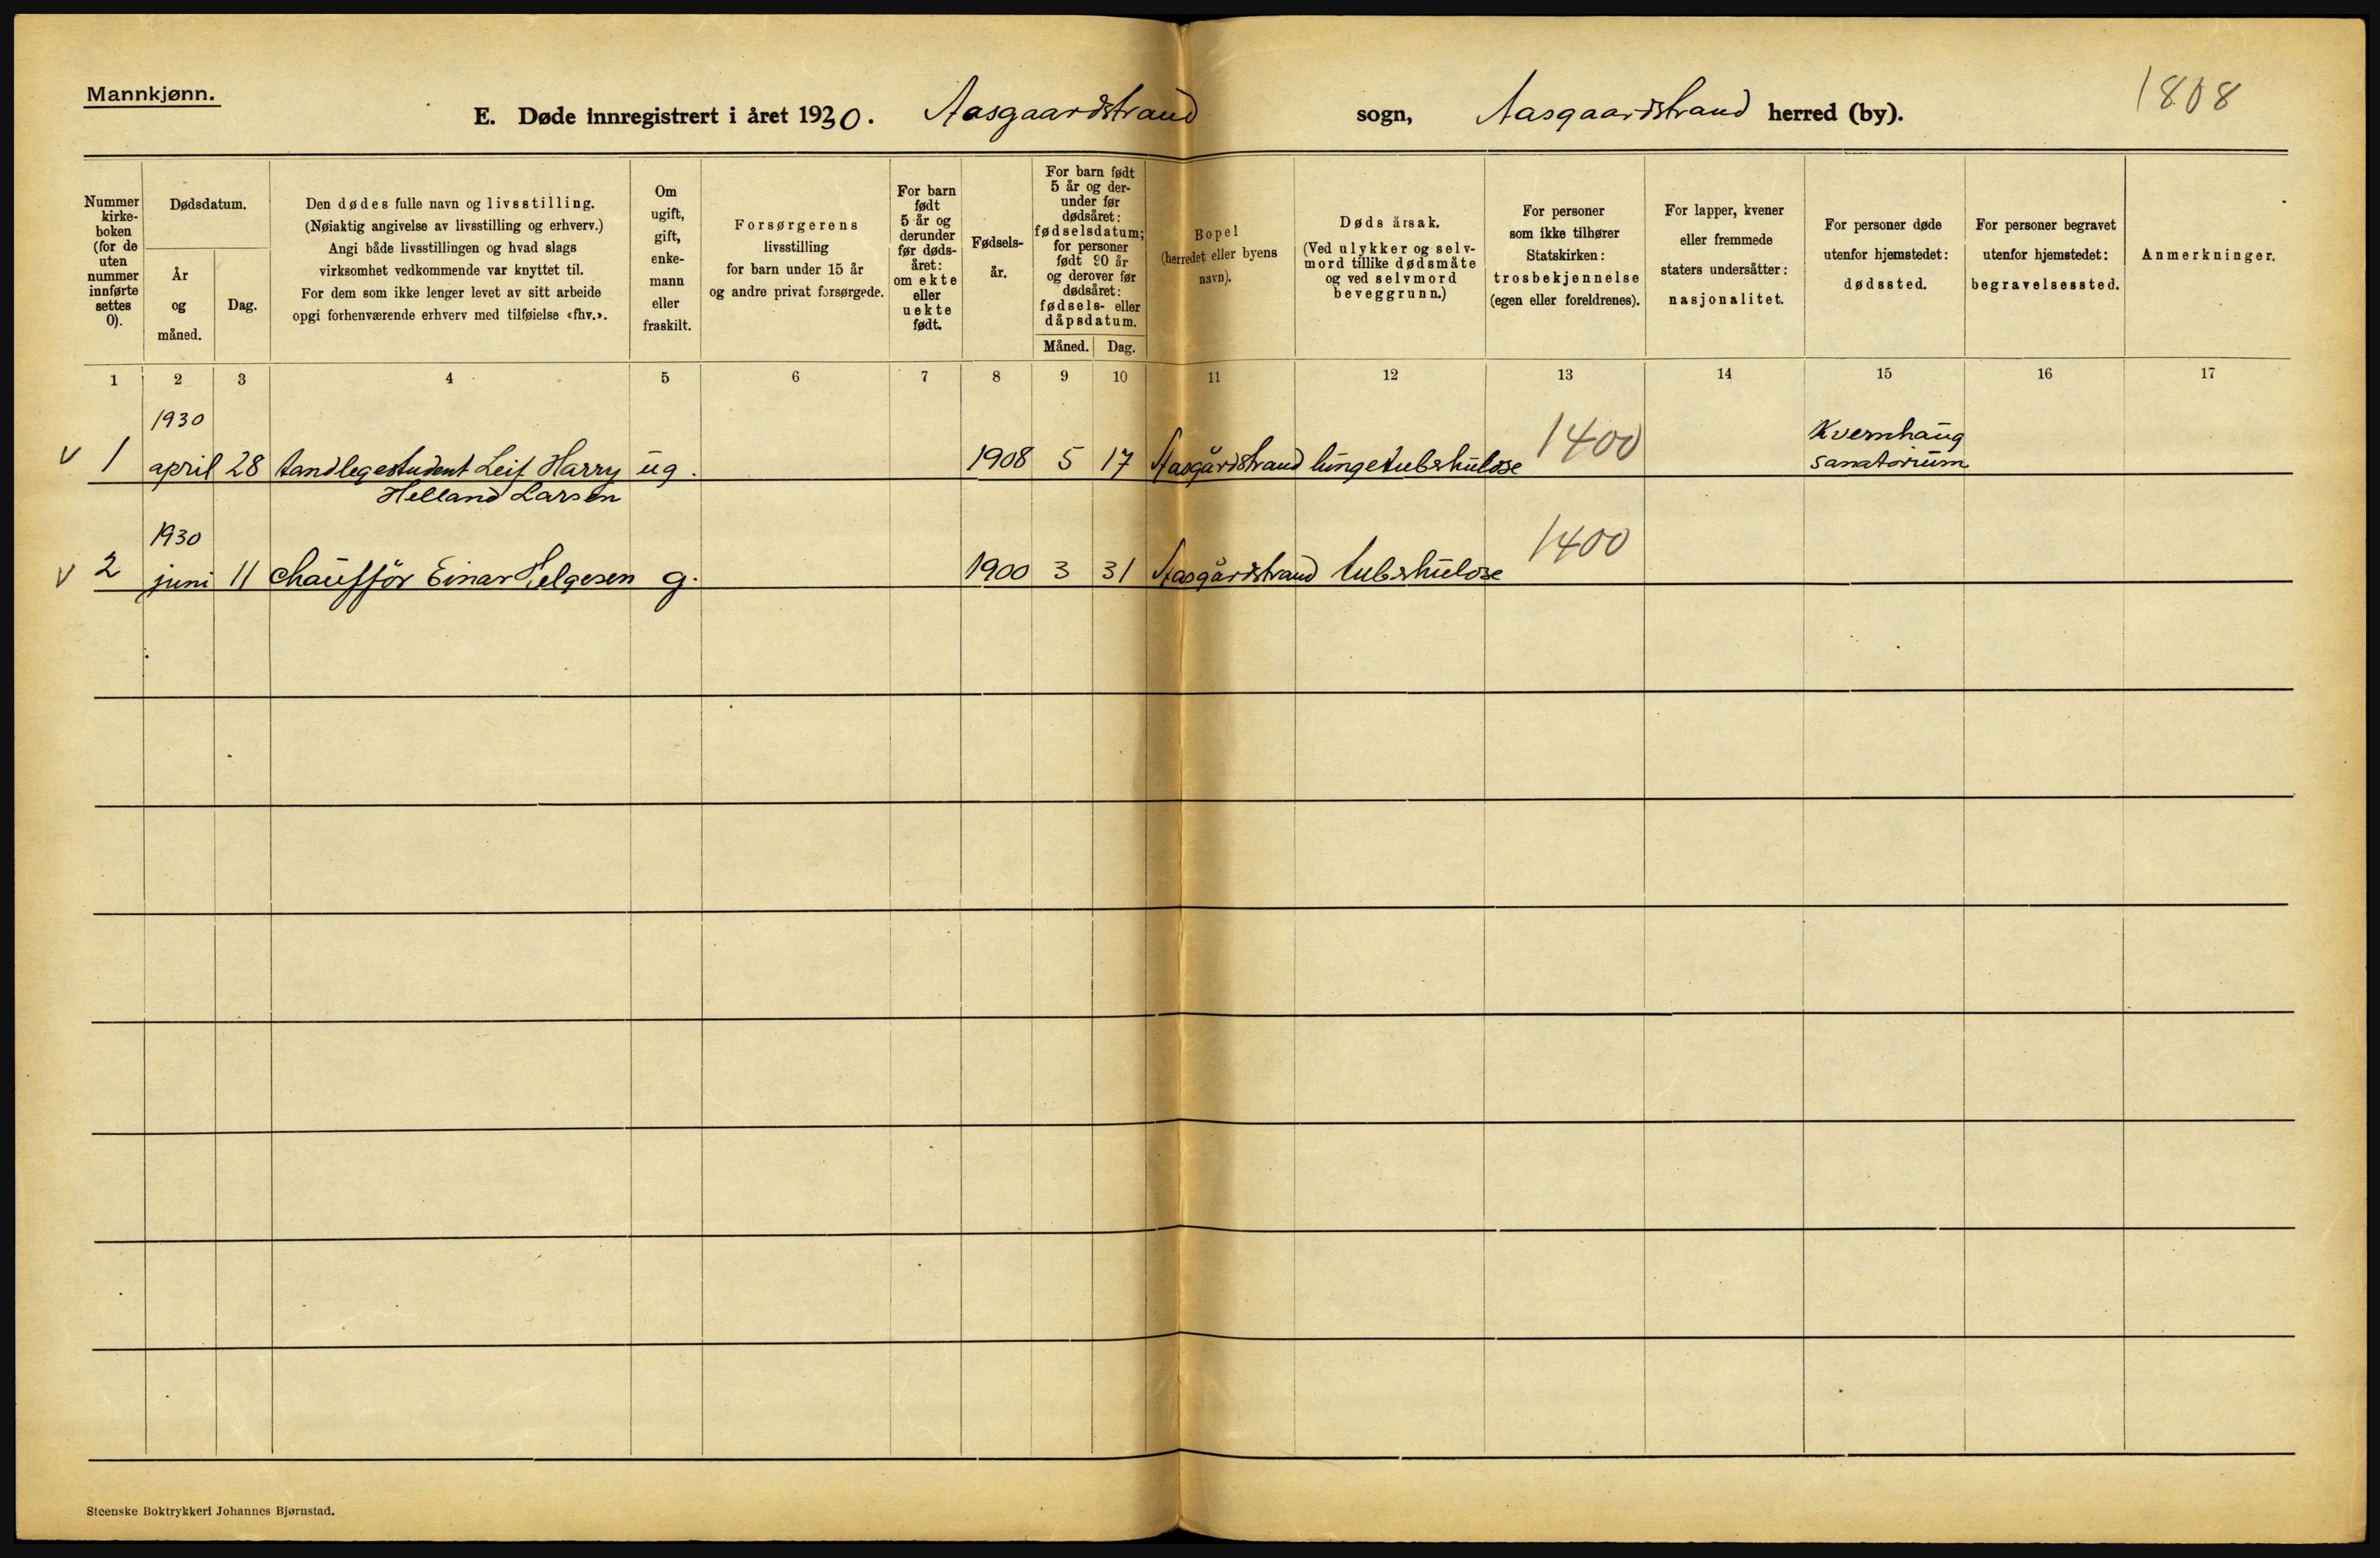 Mannkjønn.
E. Døde innregistrert i året 1930. Aasgaardstrand sogn, Aasgaardstrand herred (by).
1808
Nummer
kirke-
boken
(for de
uten
nummer
innførte
settes
0).
Dødsdatum.
År
og
måned.
Dag.
Den dødes fulle navn og livsstilling.
(Nøiaktig angivelse av livsstilling og erhverv.)
Angi både livsstillingen og hvad slags
virksomhet vedkommende var knyttet til.
For dem som ikke lenger levet av sitt arbeide
opgi forhenværende erhverv med tilføielse «fhv.».
Om
ugift,
gift,
enke-
mann
eller
fraskilt.
Forsørgerens
livsstilling
for barn under 15 år
og andre privat forsørgede.
For barn
født
5 år og
derunder
før døds-
året:
om ekte
eller
uekte
født.
Fødsels-
år.
For barn født
5 år og der-
under før
dødsåret:
fødselsdatum;
for personer
født 90 år
og derover før
dødsåret:
fødsels- eller
dåpsdatum.
Måned. Dag.
Bopel
(herredet eller byens
navn).
Døds årsak.
(Ved ulykker og selv-
mord tillike dødsmåte
og ved selvmord
beveggrunn.)
For personer
som ikke tilhører
Statskirken:
trosbekjennelse
(egen eller foreldrenes).
For lapper, kvener
eller fremmede
staters undersåtter:
nasjonalitet.
For personer døde
utenfor hjemstedet:
dødssted.
For personer begravet
utenfor hjemstedet:
begravelsessted.
Anmerkninger.
1 2 3 4 5 6 7 8 9 10 11 12 13 14 15 16 17
1930 Kvernhaug
v 1 april 28 tandlegestudent Leif Harry ug. 1908 5 17 Aasgårdstrand lungetuberkulose 1400 sanatorium
Helland Larsen
1930
v 2 juni 11 chaufför Einar Helgesen g. 1900 3 31 Aasgårdstrand tuberkulose 1400
Steenske Boktrykkeri Johannes Bjørnstad.